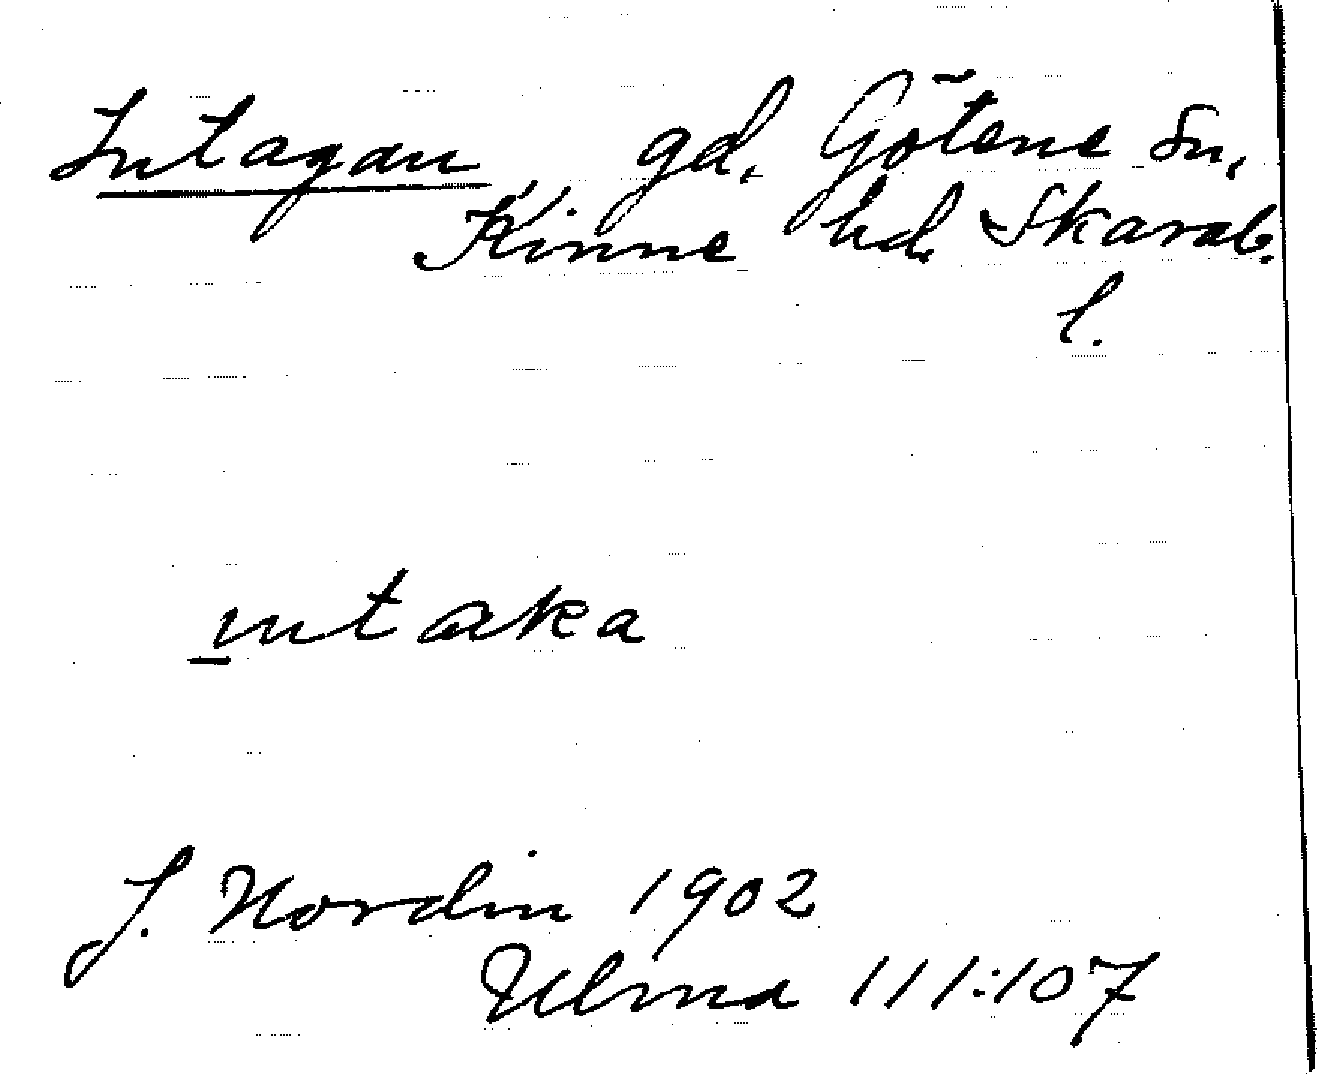 Intagan gd. Götene sn,
Kinne hd. Skarab.
l.
intaka
J. Nordin 1902
Ulma 111:107